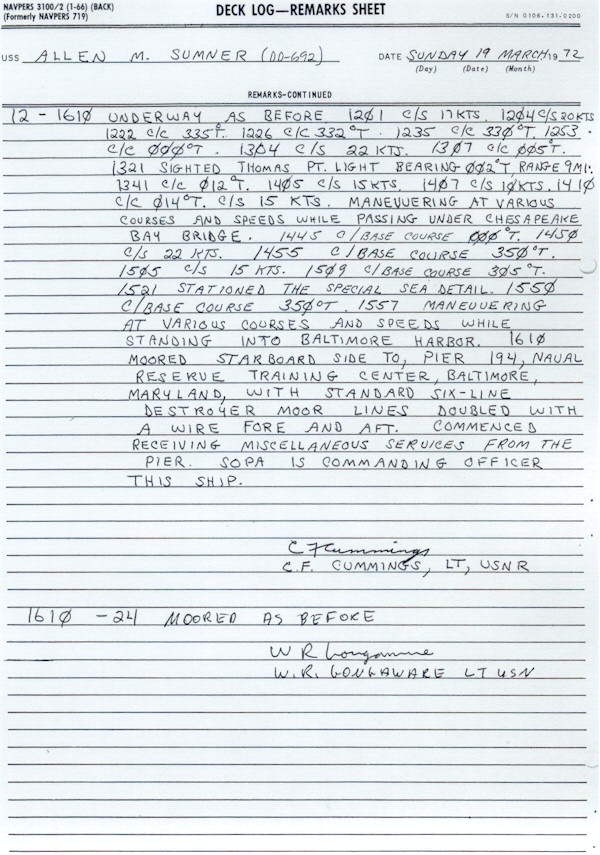 NAVPERS 3100/2 (1-66) (BACK)
(Formerly NAVPERS 719)
DECK LOG—REMARKS SHEET
S/N 0106-131-0200
USS ALLEN M. SUMNER (DD-692) DATE SUNDAY 19 MARCH 1972
(Day) (Date) (Month)
REMARKS—CONTINUED
12 - 161Ø UNDERWAY AS BEFORE 12Ø1 C/S 17 KTS. 12Ø4 C/S 20 KTS
1222 C/C 335°T. 1226 C/C 332°T. 1235 C/C 33Ø°T. 1253.
C/C ØØØ°T. 13Ø4 C/S 22 KTS. 13Ø7 C/C ØØ5°T.
1321 SIGHTED THOMAS PT. LIGHT BEARING ØØ2°T, RANGE 9MI.
1341 C/C Ø12°T. 14Ø5 C/S 15KTS. 14Ø7 C/S 1ØKTS. 141Ø
C/C Ø14°T. C/S 15 KTS. MANEUVERING AT VARIOUS
COURSES AND SPEEDS WHILE PASSING UNDER CHESAPEAKE
BAY BRIDGE. 1445 C/BASE COURSE ØØØ°T. 145Ø
C/S 22 KTS. 1455 C/BASE COURSE 35Ø°T.
15Ø5 C/S 15 KTS. 15Ø9 C/BASE COURSE 3Ø5°T.
1521 STATIONED THE SPECIAL SEA DETAIL. 155Ø
C/BASE COURSE 35Ø°T. 1557 MANEUVERING
AT VARIOUS COURSES AND SPEEDS WHILE
STANDING INTO BALTIMORE HARBOR. 161Ø
MOORED STARBOARD SIDE TO, PIER 194, NAVAL
RESERVE TRAINING CENTER, BALTIMORE,
MARYLAND, WITH STANDARD SIX-LINE
DESTROYER MOOR LINES DOUBLED WITH
A WIRE FORE AND AFT. COMMENCED
RECEIVING MISCELLANEOUS SERVICES FROM THE
PIER. SOPA IS COMMANDING OFFICER
THIS SHIP.
C F Cummings
C.F. CUMMINGS, LT, USNR
161Ø - 24 MOORED AS BEFORE
W R Longaware
W.R. LONGAWARE LT USN